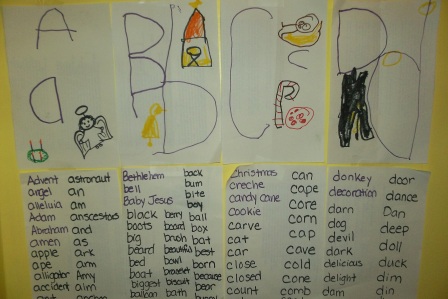 A
a
B
b
C
c
D
d
Advent astronaut
angel an
alleluia am
Adam anscestors
Abraham and
amen as
apple ark
ape arm
alligator Amy
accident aim
Bethlehem back
bell bum
Baby Jesus bite
black berry ball
boots board box
big bat
beard beautiful best
bed bowl born
boat because
biggest biscuit bar
balloon bath bear
Christmas can
creche cape
candy cane core
cookie corn
carve cap
cat cave
car cold
close cone
closed comb
count
donkey door
decoration dance
darn Dan
dog deep
devil doll
dark duck
delicious dim
delight din
dam